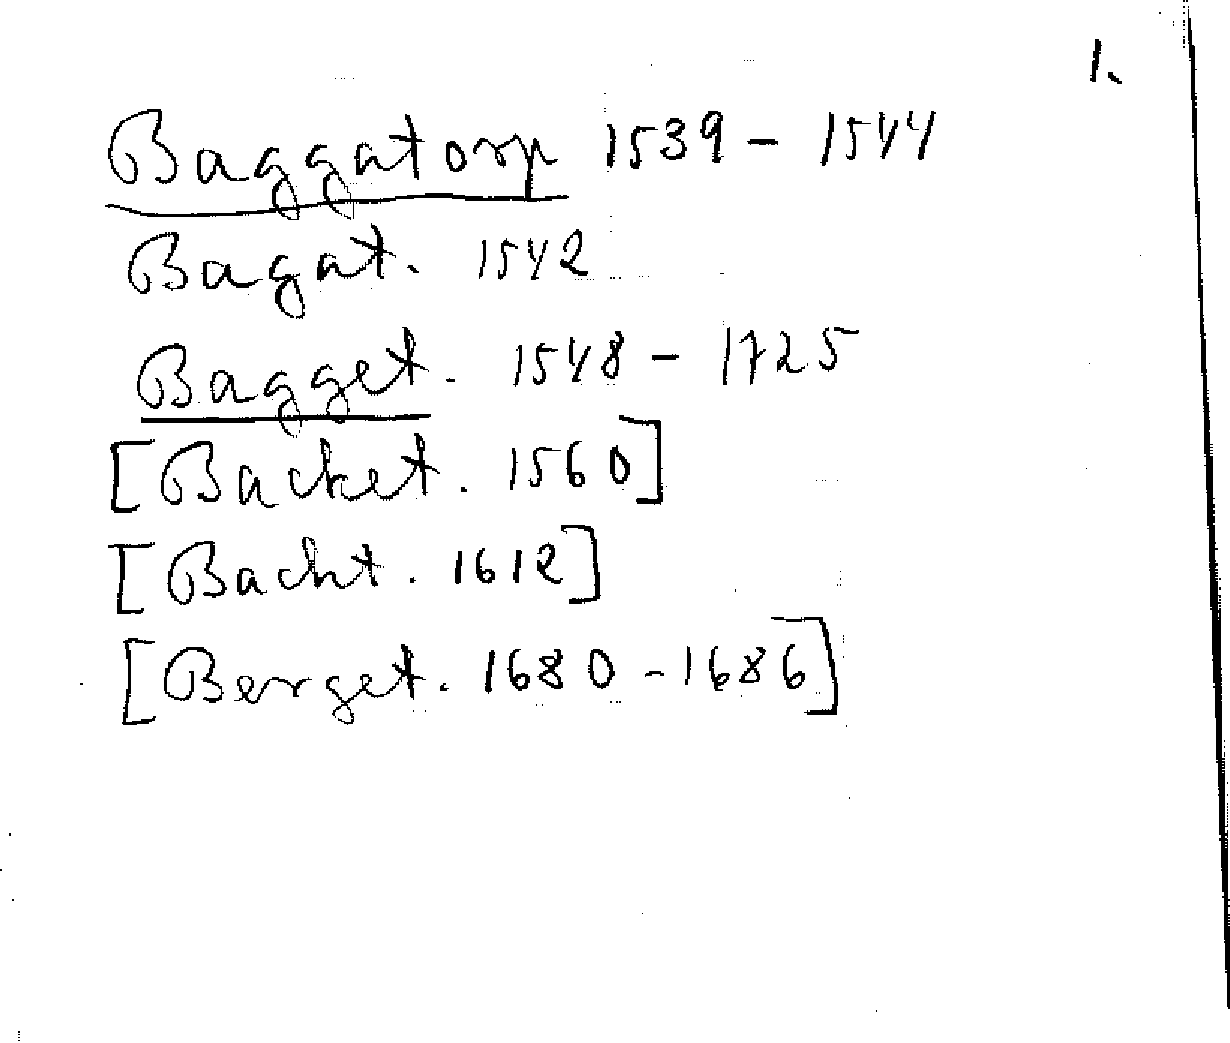 1.
Baggatorp 1539 - 1544
Bagat. 1542
Bagget. 1548 - 1725
[Backet. 1560]
[Bacht. 1612]
[Berget. 1680 - 1686]